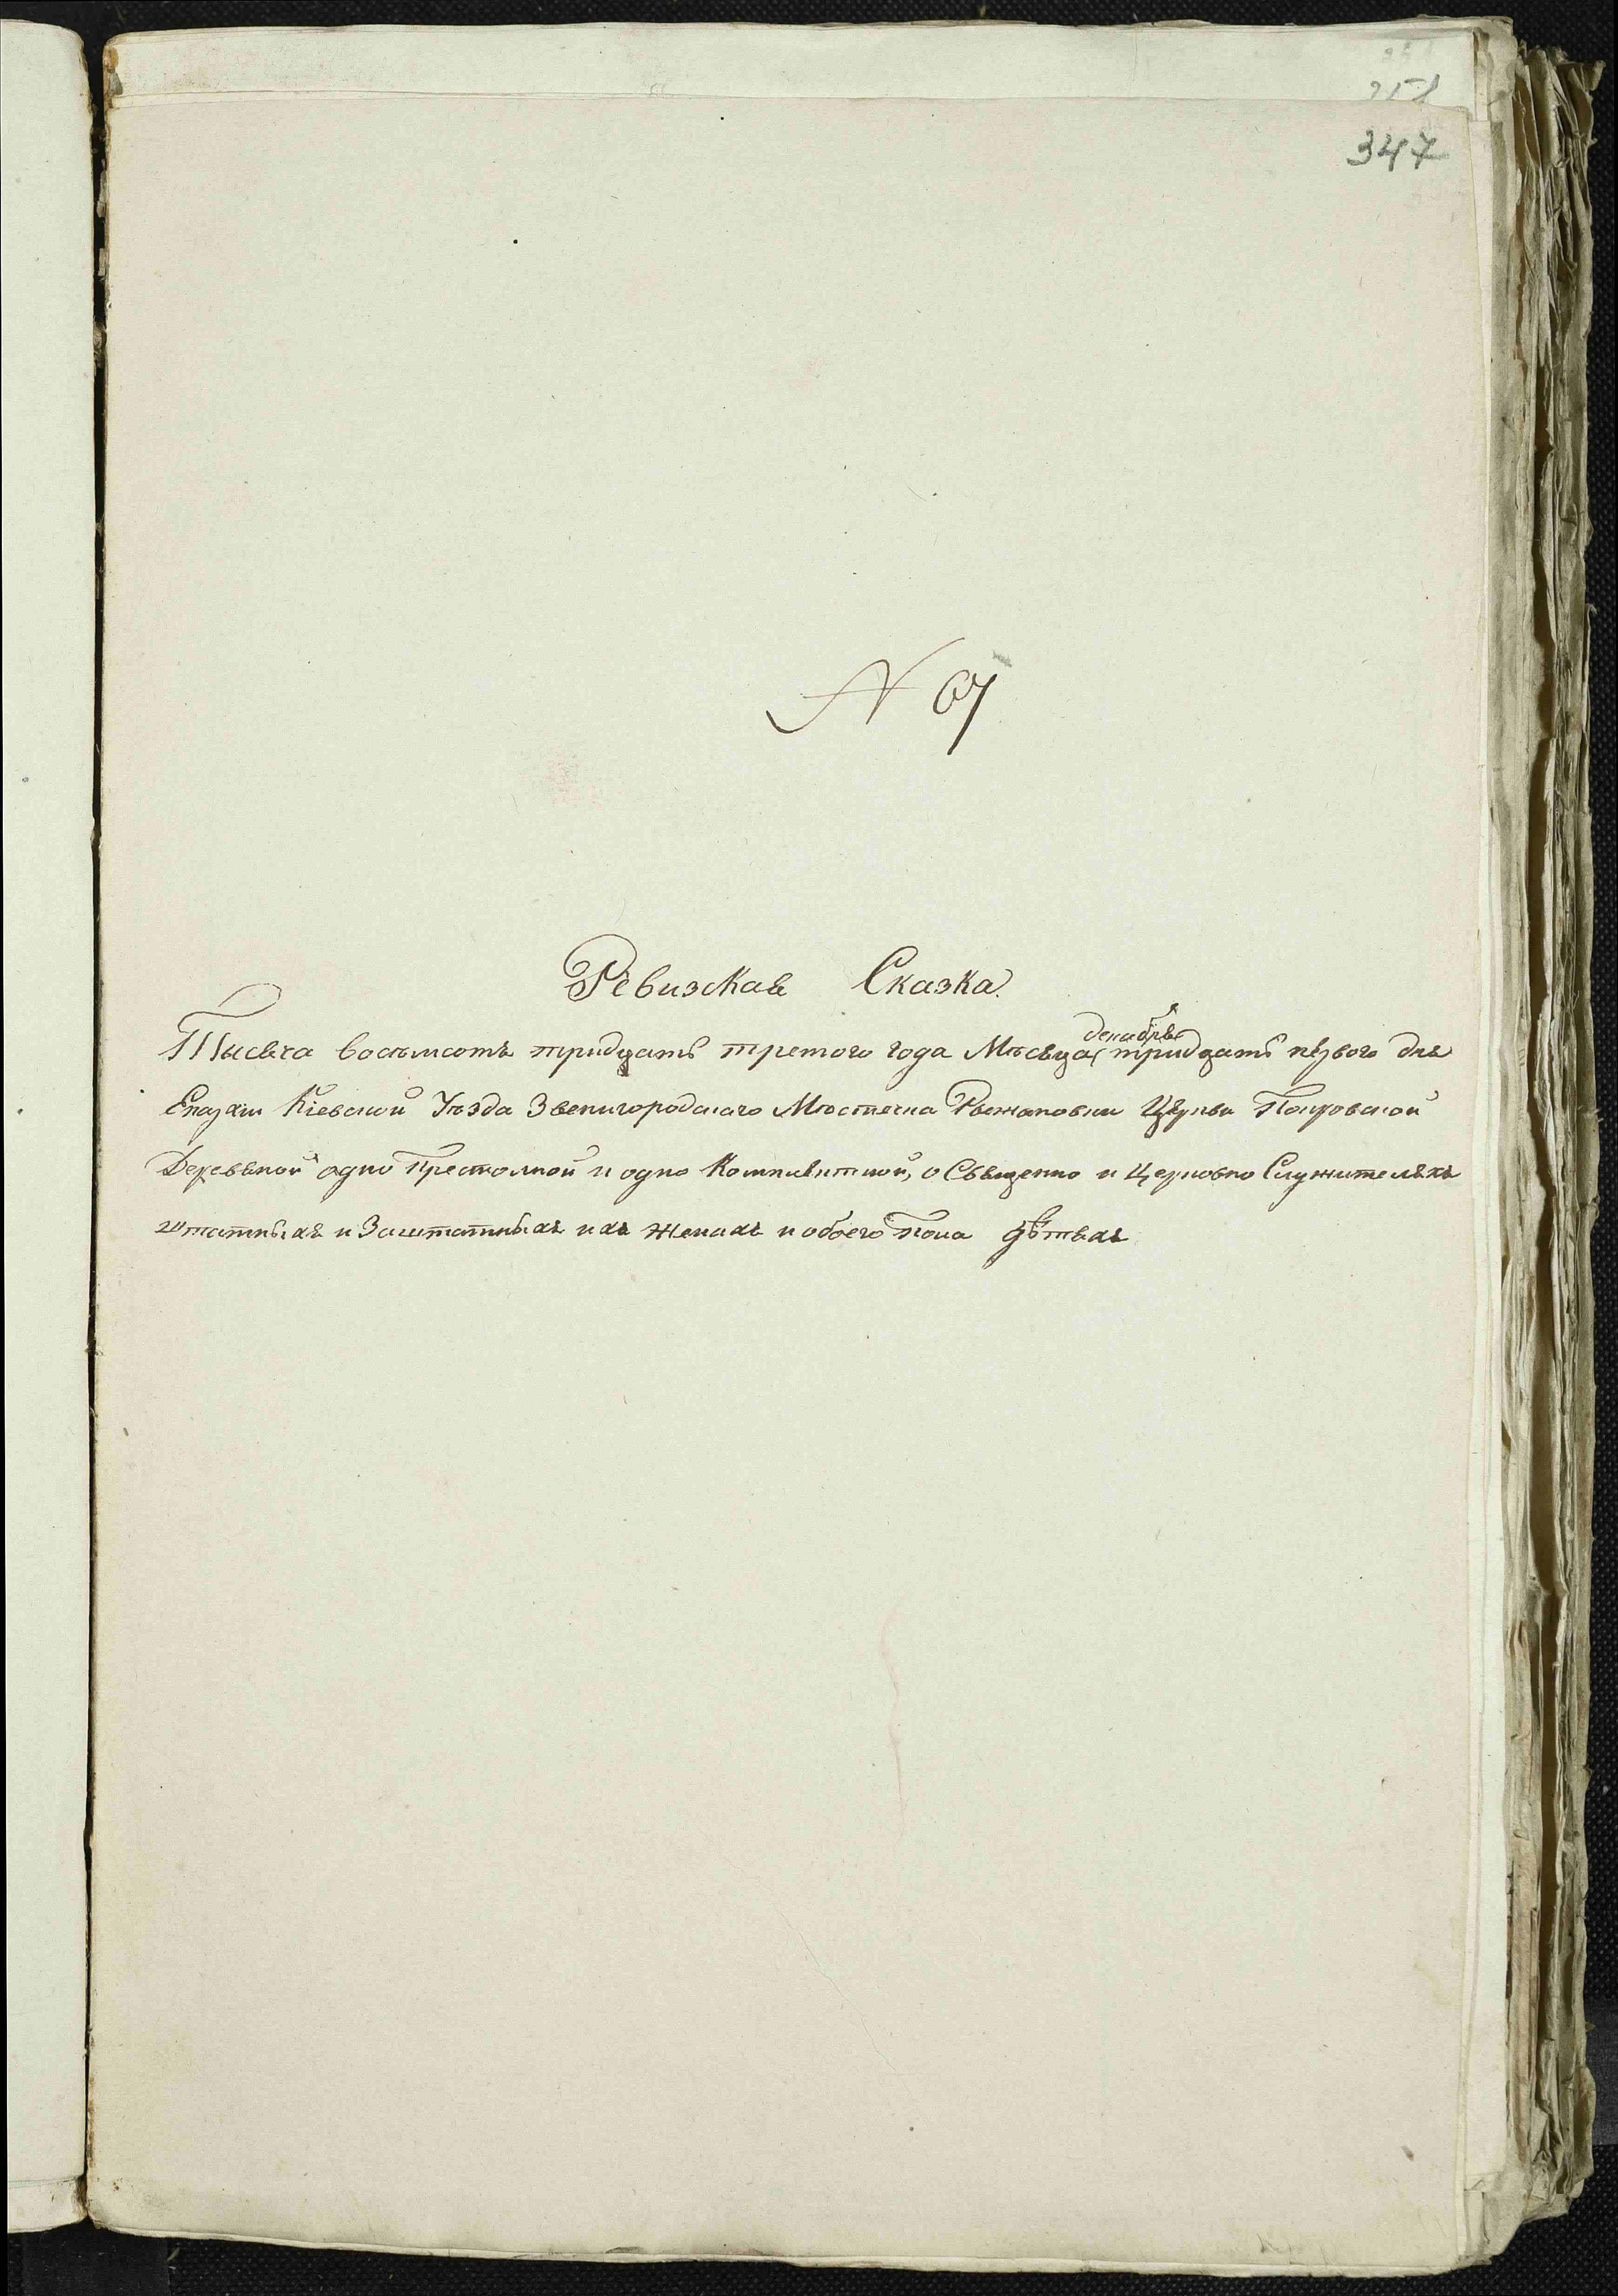 347
N 67
Ревизская Сказка.
Тысяча восемьсотъ тридцать третого года Мѣсяца декабря тридцать первого дня
Епархіи Кіевской Уѣзда Звенигородскаго Мѣстечка Рыжановки Церкви Покровской
Деревяной одно Престолной и одно Комплѣктной, о Священно и Церковно Служителяхъ
штатныхъ и Заштатныхъ ихъ женахъ и обоего Пола дѣтяхъ